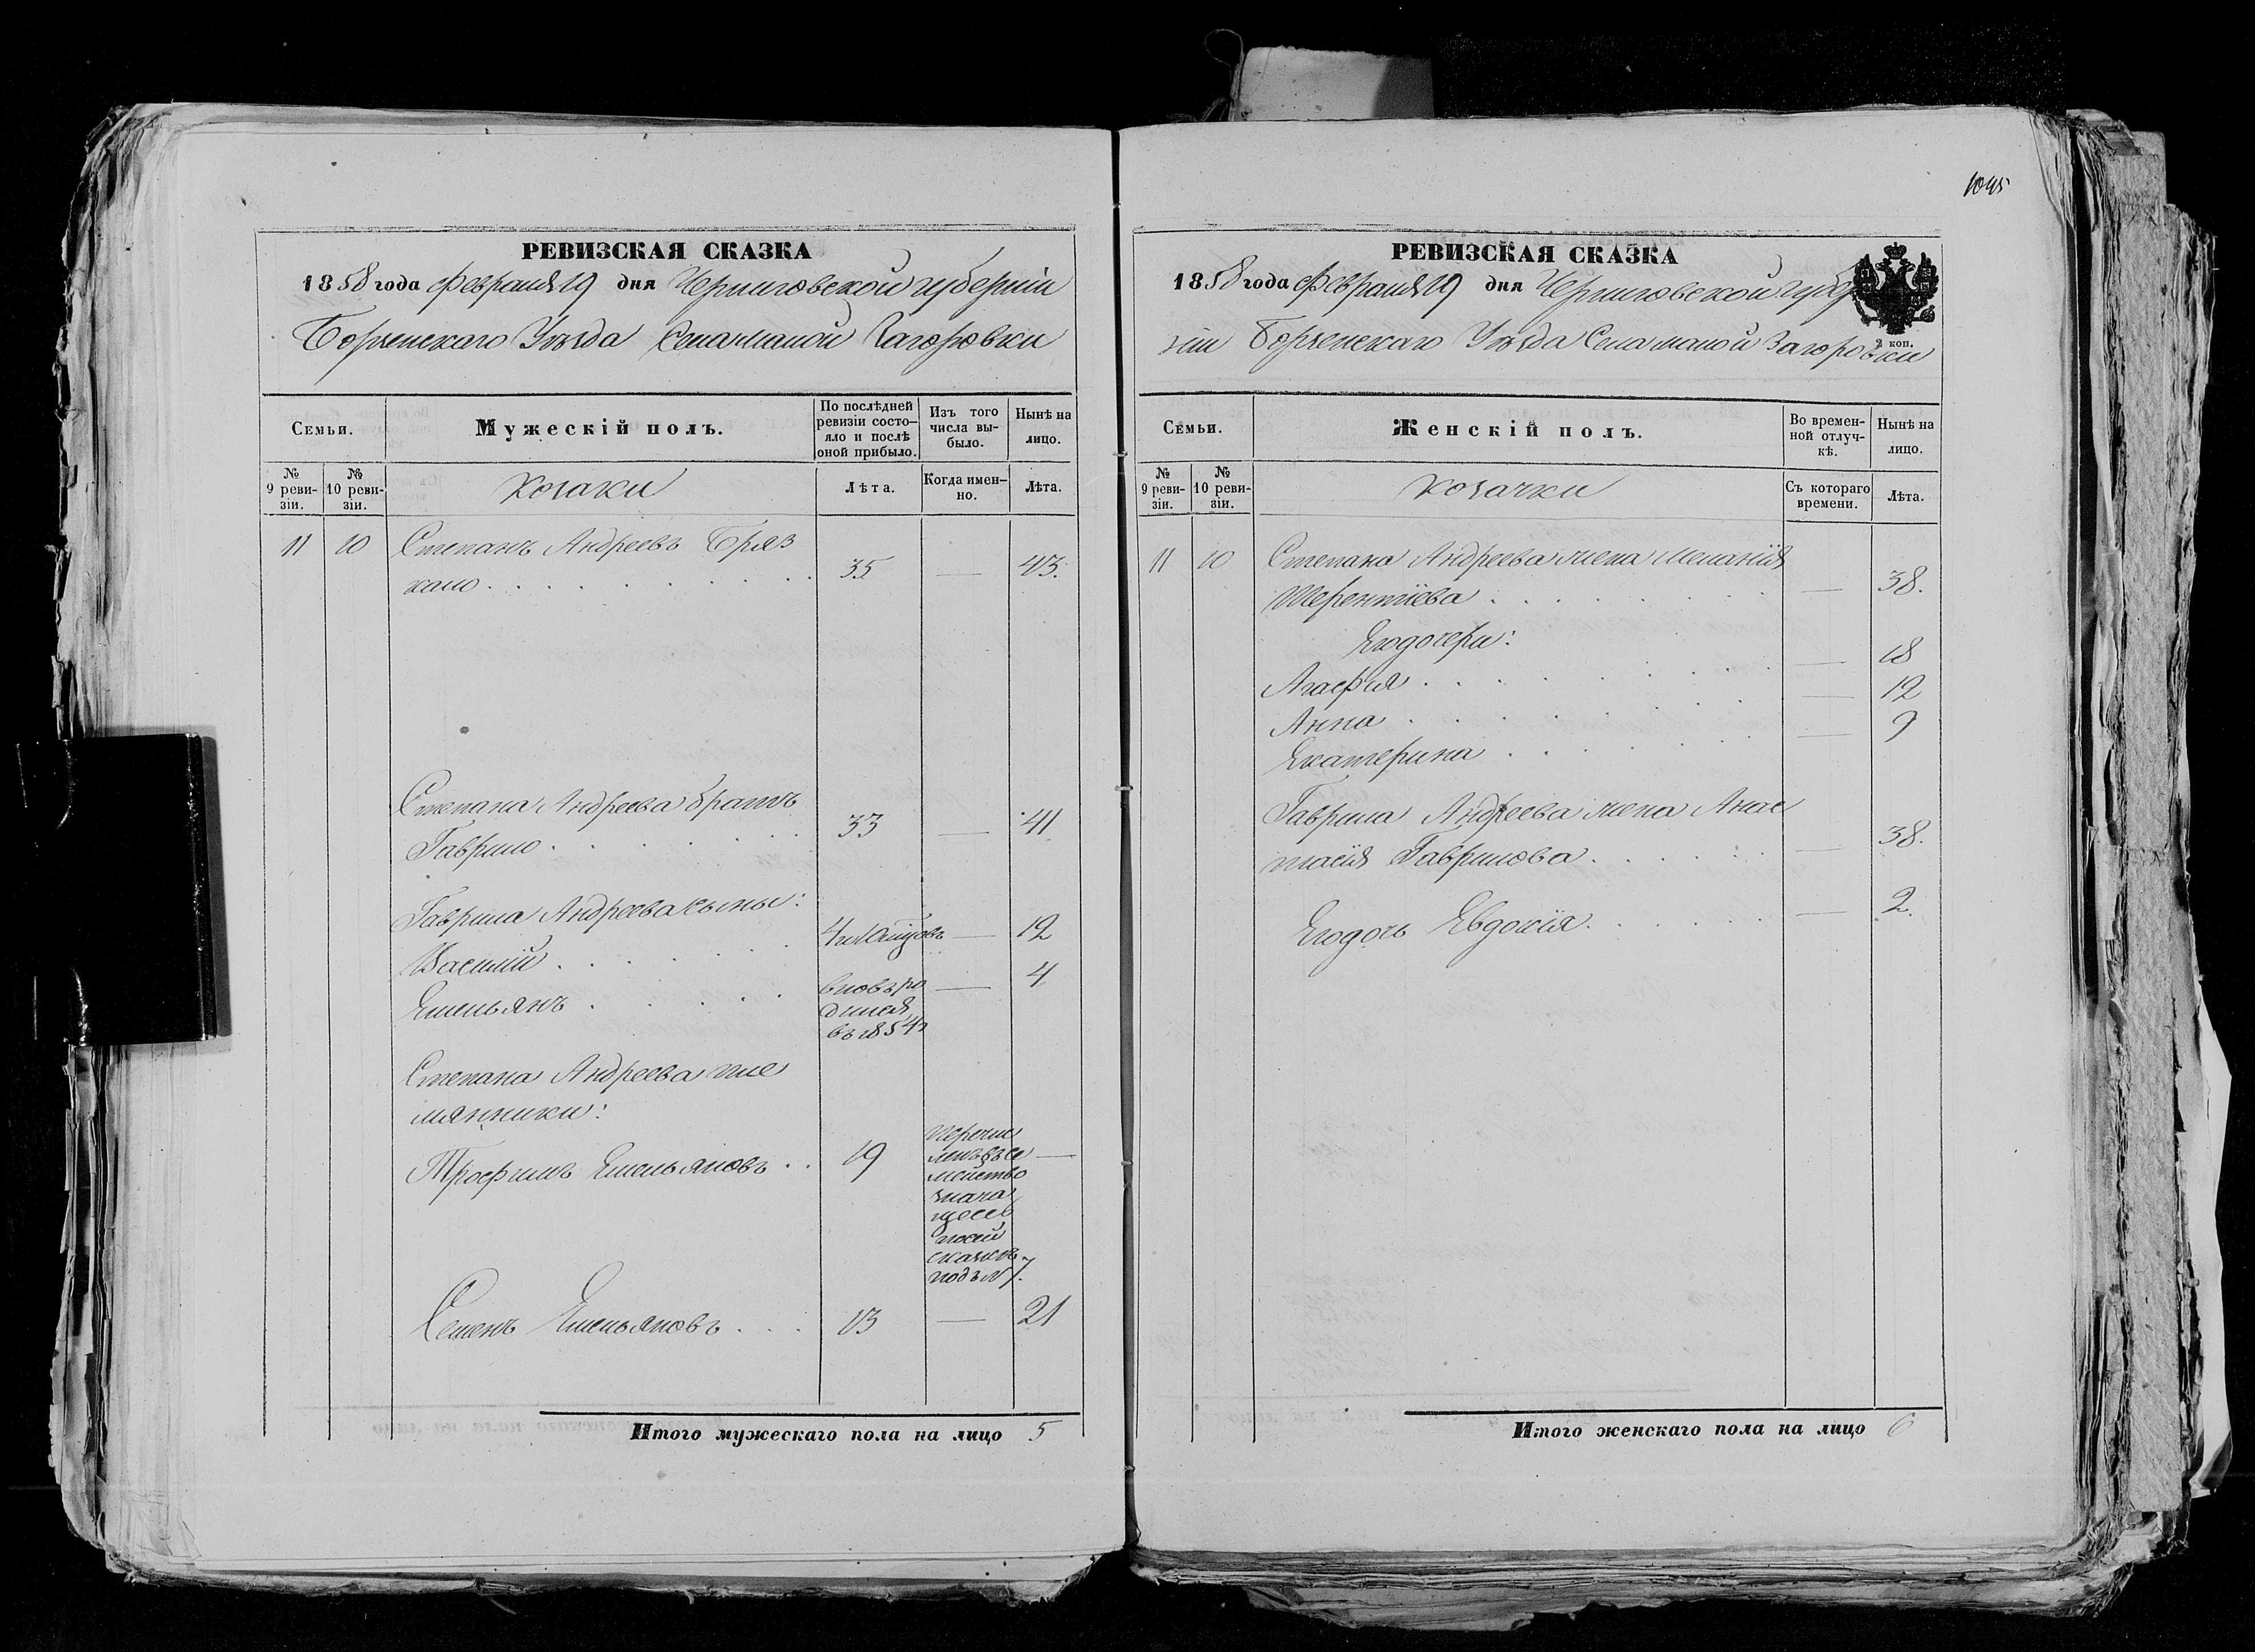 1045
РЕВИЗСКАЯ СКАЗКА
1858 года Февраля 19 дня Черниговской губерніи
Борзенскаго Уѣзда Села малой Загоровки
Семьи.
Мужескій полъ.
По послѣдней ревизіи состо-
яло и послѣ оной прибыло.
Изъ того числа вы-
было.
Нынѣ на лицо.
№ 9 реви-
зіи.
№ 10 реви-
зіи.
Козаки
Лѣта.
Когда имен-
но.
Лѣта.
11 10 Степанъ Андреевъ Бряз
кало 35 — 43.
Степана Андреева братъ
Гаврило 33 — 41
Гаврила Андреева сыны:
Василій 4 — 12
Емельянъ вновь ро — 4
дился
въ 1854
Степана Андреева пле
мянники:
Трофимъ Емельяновъ 19 перечис —
ленъ въ се
мейство
знача
щеесь
по сей
сказкѣ
подъ № 7.
Семенъ Емельяновъ 13 — 21
Итого мужескаго пола на лицо 5
РЕВИЗСКАЯ СКАЗКА
1858 года Февраля 19 дня Черниговской губер
ніи Борзенскаго Уѣзда Села малой Загоровки
2 коп.
Семьи.
Женскій полъ.
Во времен-
ной отлуч-
кѣ.
Нынѣ на лицо.
№ 9 реви-
зіи.
№ 10 реви-
зіи.
Козачки
Съ котораго времени.
Лѣта.
11 10 Степана Андреева жена Меланія
Терентіева — 38.
Его дочери:
Агафія — 18
Анна — 12
Екатерина — 9
Гаврила Андреева жена Анас
тасія Гаврилова — 38.
Его дочь Евдокія — 2.
Итого женскаго пола на лицо 6